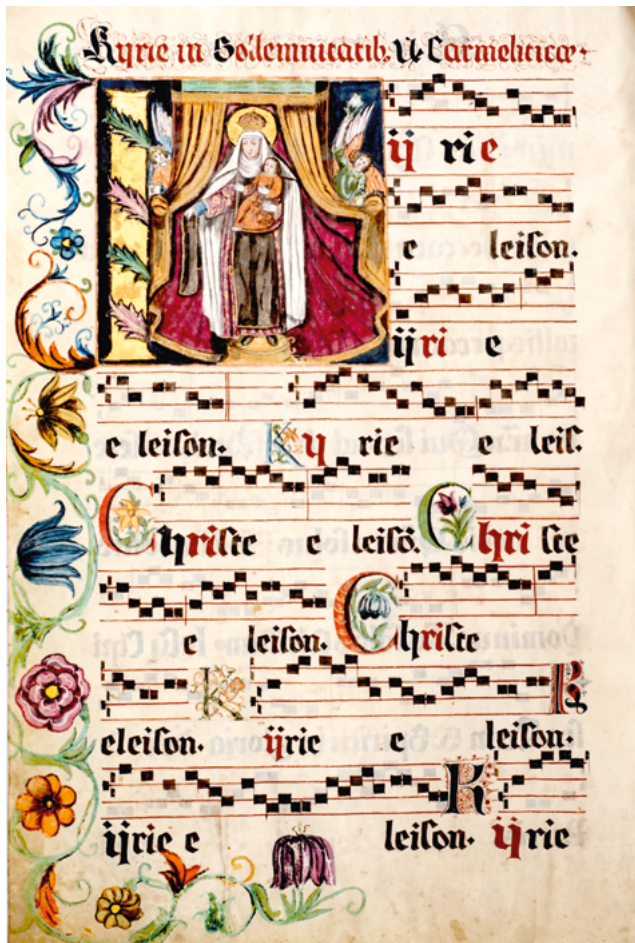 Kyrie in Solemnitatib. V. Carmeliticæ
Kÿ rie
e leiſon.
ÿri e
e leiſon. Ky rie e leiſ.
Chriſte e leiſō. Chri ſte
e leiſon. Chriſte
eleiſon. Kÿrie e leiſon. K
ÿrie e leiſon. Kÿrie